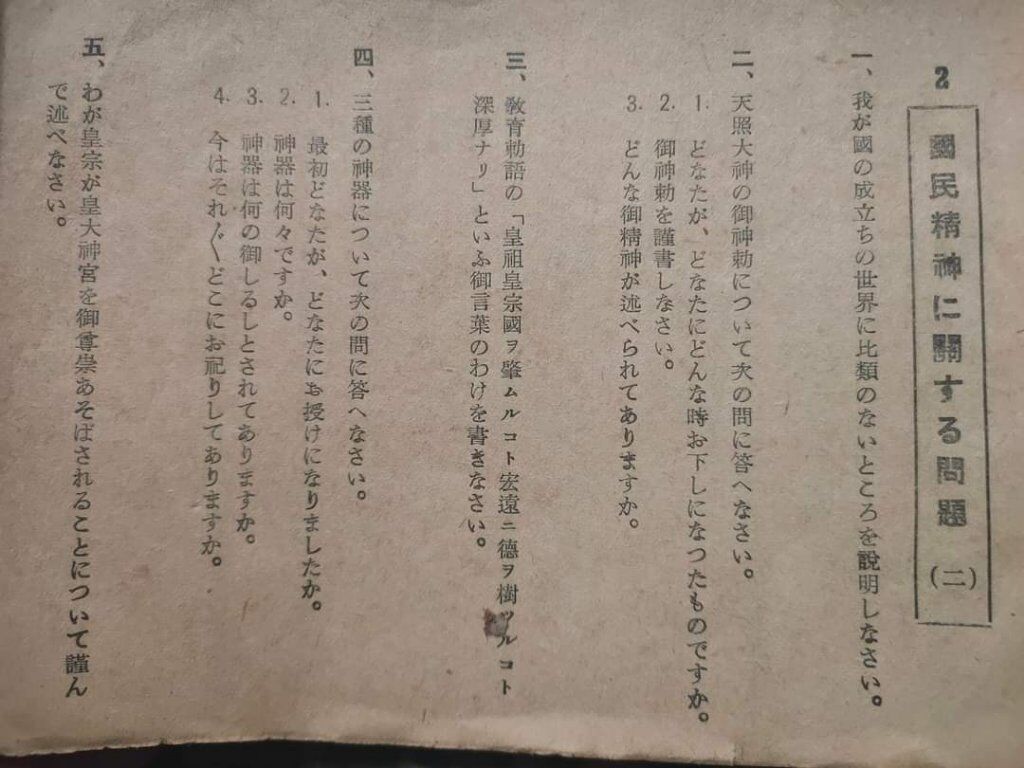 2 國民精神に關する問題(二)
一、我が國の成立ちの世界に比類のないところを說明しなさい。
二、天照大神の御神勅について次の問に答へなさい。
1. どなたが、どなたにどんな時お下しになつたものですか。
2. 御神勅を謹書しなさい。
3. どんな御精神が述べられてありますか。
三、敎育勅語の「皇祖皇宗國ヲ肇ムルコト宏遠ニ德ヲ樹ツルコト
深厚ナリ」といふ御言葉のわけを書きなさい。
四、三種の神器について次の問に答へなさい。
1. 最初どなたが、どなたにお授けになりましたか。
2. 神器は何々ですか。
3. 神器は何の御しるしとされてありますか。
4. 今はそれ〴〵どこにお祀りしてありますか。
五、わが皇宗が皇大神宮を御尊崇あそばされることについて謹ん
で述べなさい。